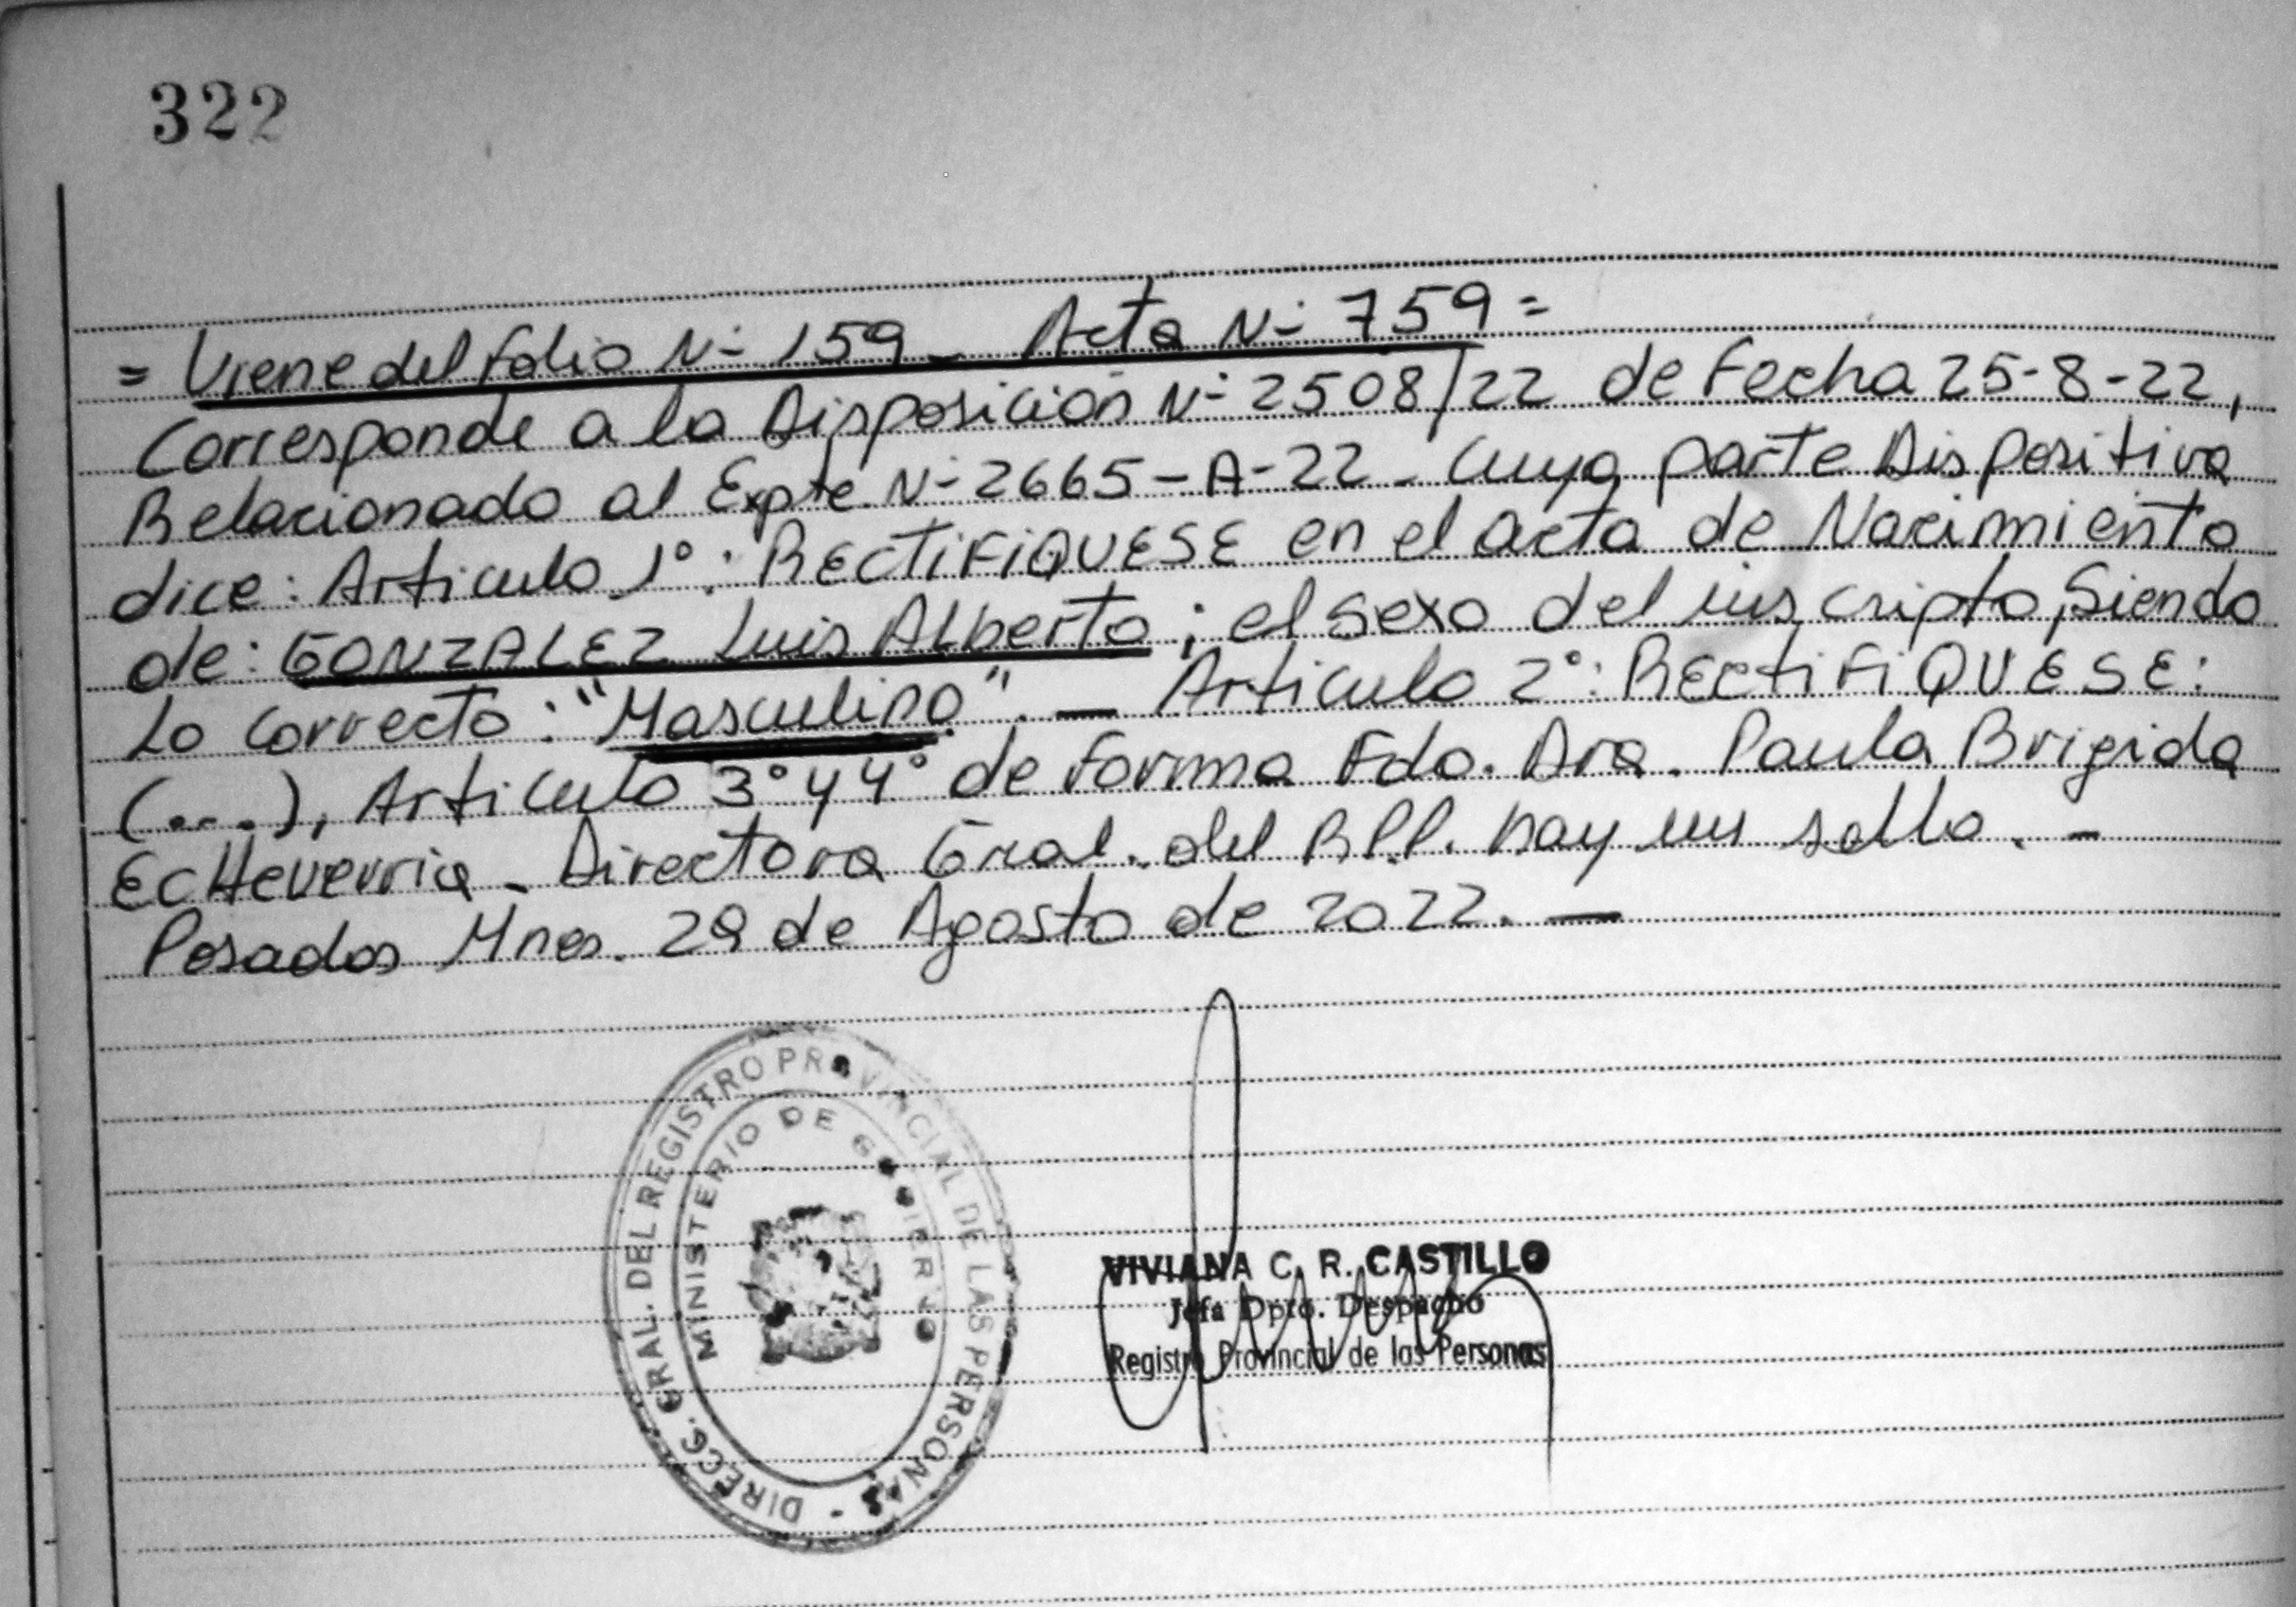 322
= Viene del folio N° 159 - Acta N° 759 =
Corresponde a la Disposición N° 2508/22 de Fecha 25-8-22,
Relacionado al Expte. N° 2665-A-22 - Cuya parte Dispositiva
dice: Articulo 1°: RECTIFIQUESE en el acta de Nacimiento
de: GONZALEZ Luis Alberto; el sexo del inscripto, Siendo
Lo Correcto: "Masculino". — Articulo 2°: RECTIFIQUESE:
(...), Articulo 3° y 4° de forma Fdo. Dra. Paula Brigida
Echeverria - Directora Gral. del RPP. hay un sello. -
Posadas Mnes. 29 de Agosto de 2022. —
DIRECC. GRAL. DEL REGISTRO PROVINCIAL DE LAS PERSONAS -
MINISTERIO DE GOBIERNO
VIVIANA C. R. CASTILLO
Jefa Dpto. Despacho
Registro Provincial de las Personas